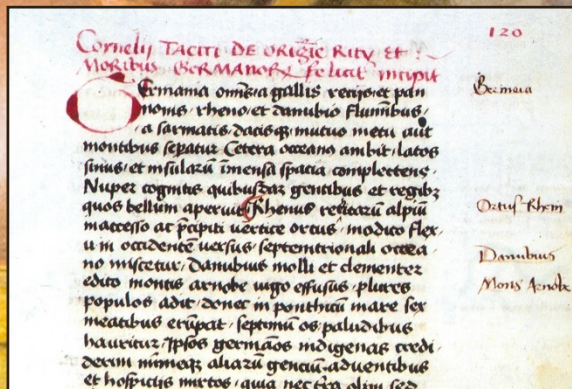 120
Cornelii TACITI DE ORIGĪE RITV ET
MORIBVS GERMANORꝜ feliciť incipit
Germania omīs a gallis retiisq et pan
noniis rheno et danubio fluminibus
a sarmatis dacisqꝫ mutuo metu aut
montibus sepatur Cetera occeano ambit latos
sinus et insularū īmensa spacia complectens
Nuper cognitis quibusdā gentibus et regibꝫ
quos bellum aperuit Rhenus reticarū alpiū
inaccesso ac p̄cipiti vertice ortus modico flex
u in occidentē versus septemtrionali occea
no miscetur Danubius molli et clementer
edito montis arnobe iugo effusus plures
populos adit donec in ponthicū mare sex
meatibus erūpat septimū os paludibus
hauritur Ipsos germāos indigenas credi
derim minimeqꝫ aliarū gentiū adventibus
et hospiciis mixtos quia nec tr̄a olim sed
Germania
Ortus Rheni
Danubius
Mons Arnobe